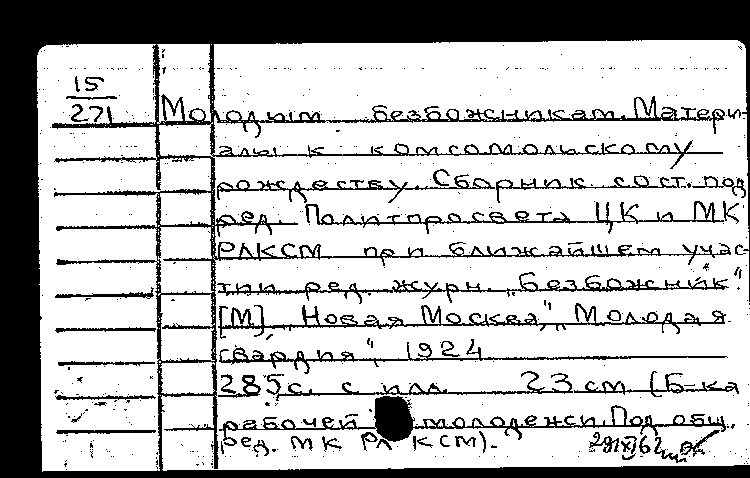 15
271 Молодым безбожникам. Матери-
алы к комсомольскому
рождеству. Сборник сост. под
ред. Политпросвета ЦК и МК
РЛКСМ при ближайшем учас-
тии ред. журн. „Безбожник".
[М], „Новая Москва", „Молодая
гвардия", 1924
285с. с илл. 23 см (Б-ка
рабочей молодежи. Под общ.
ред. МК РЛКСМ).